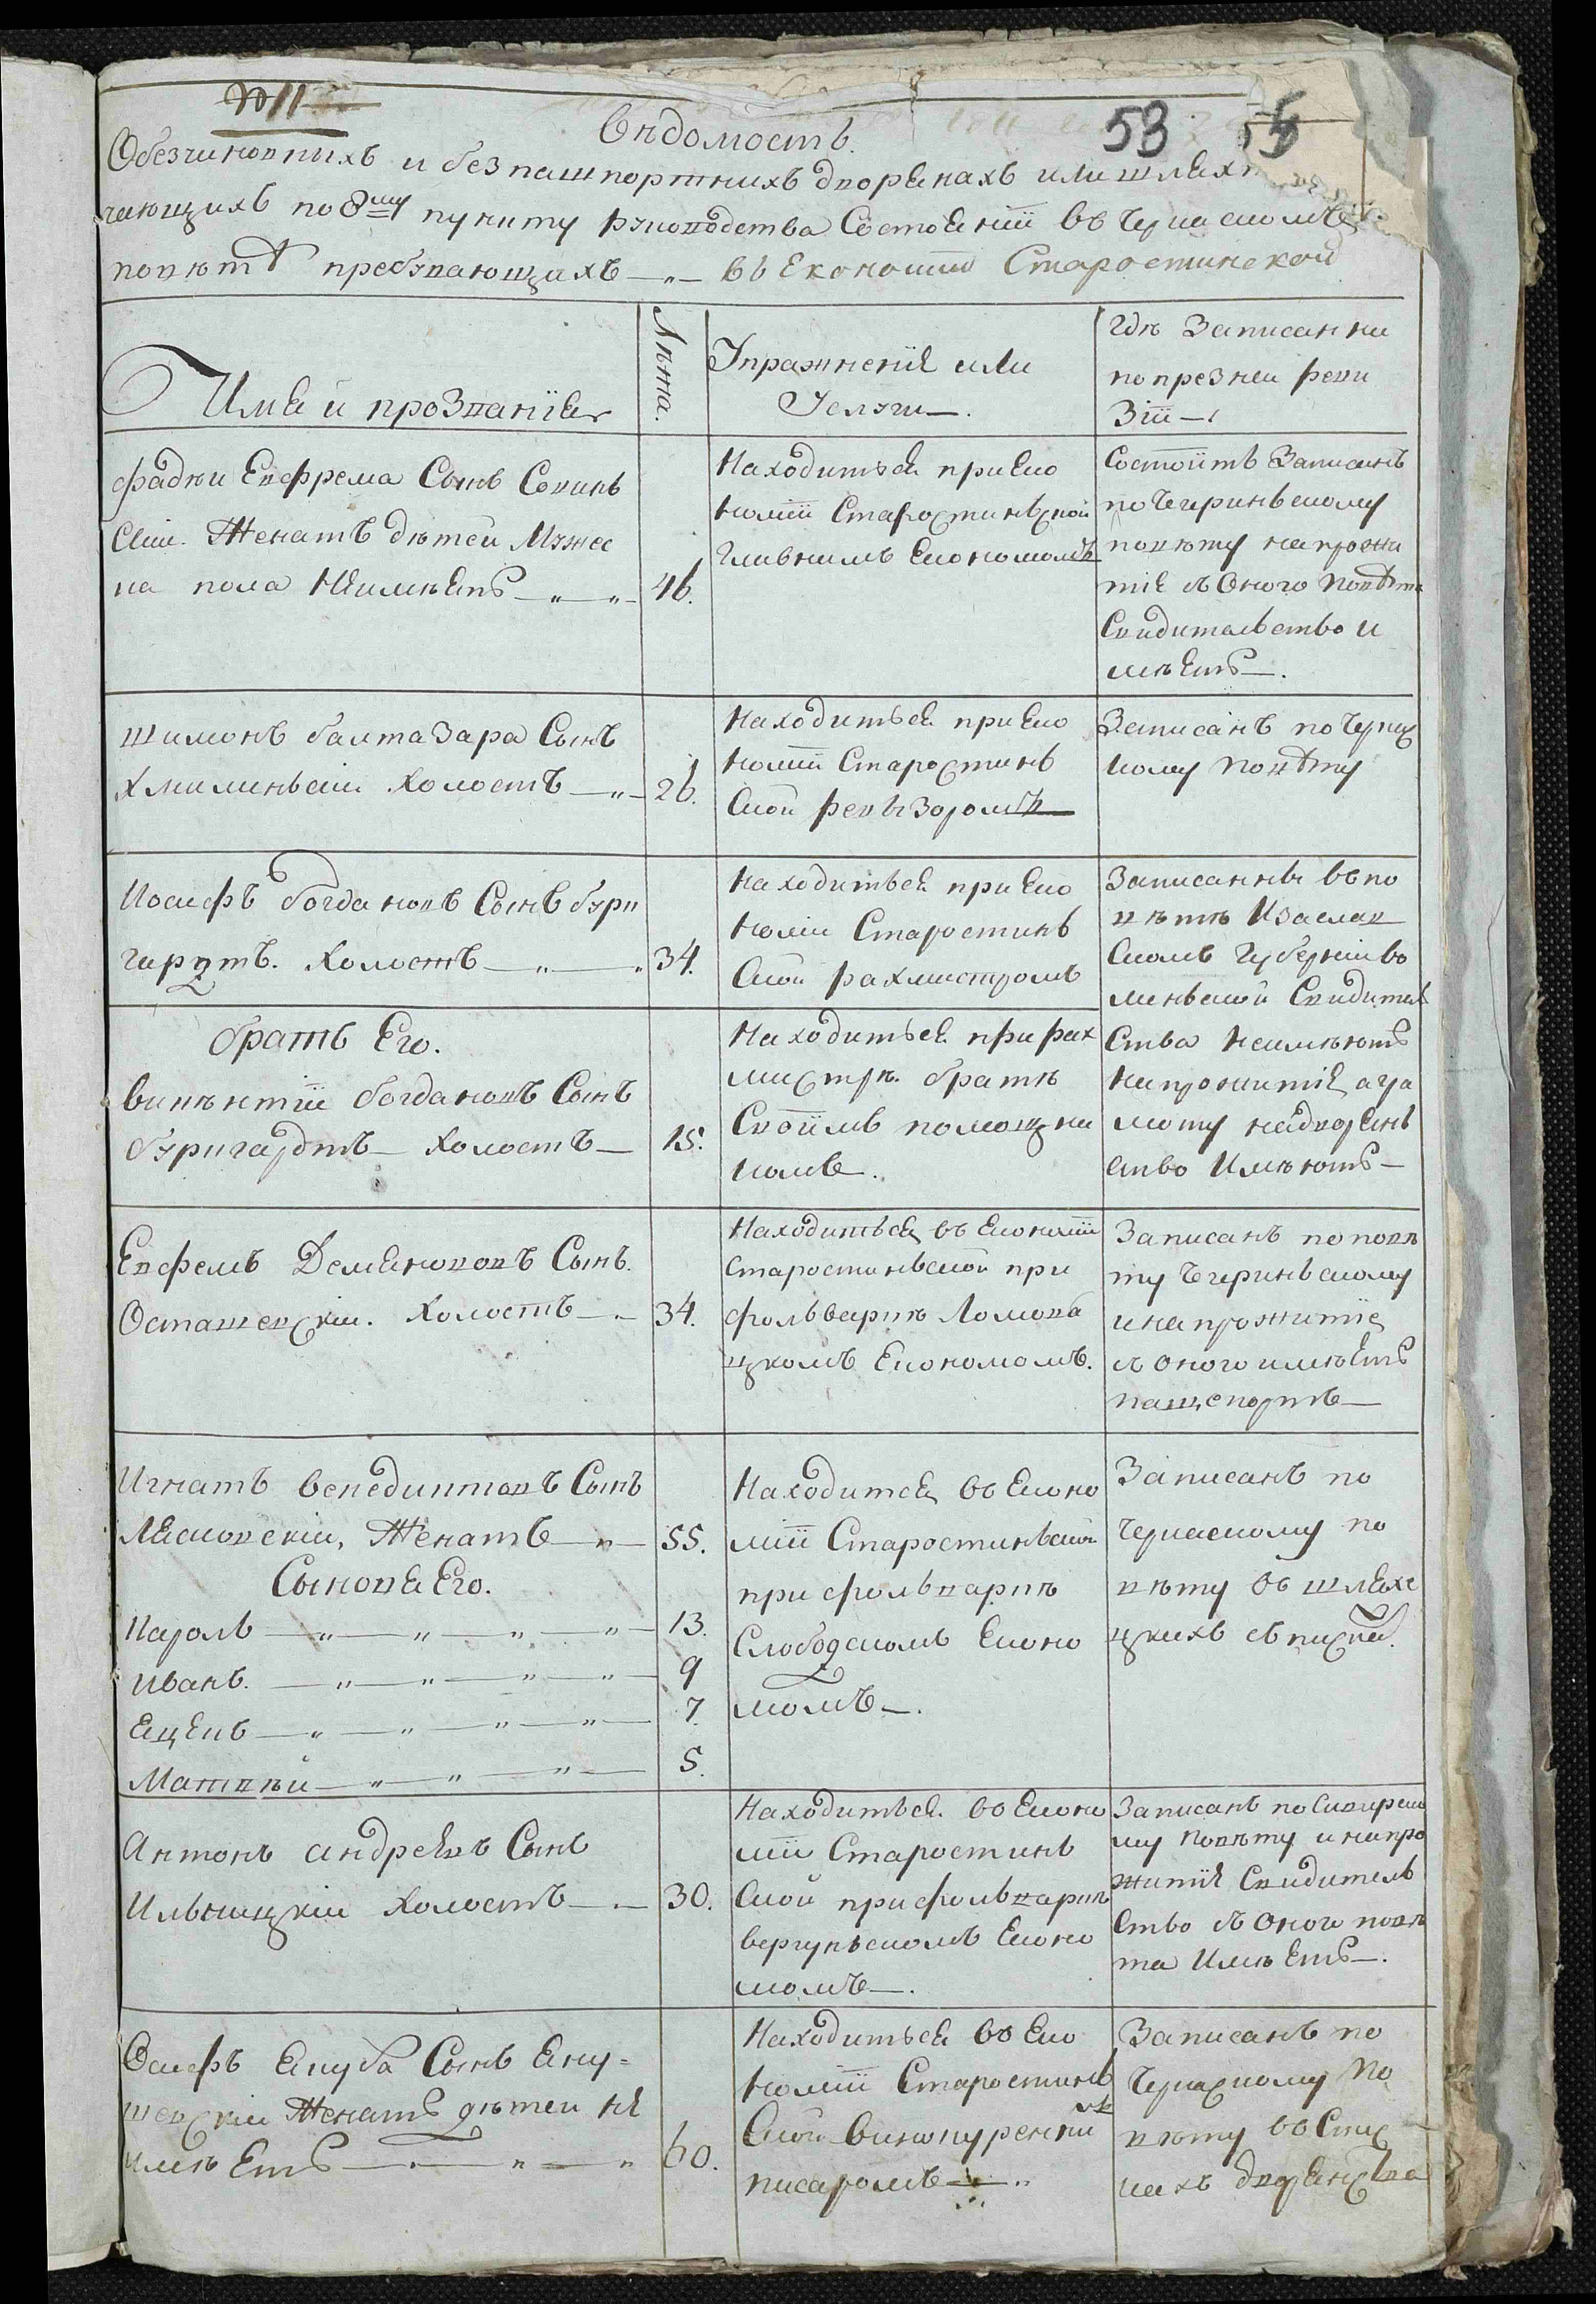 № 11
53
Вѣдомость
Обезчиновныхъ и безпашпортнихъ дворянахъ или шляхт
чающихъ по 8му пункту руководства Состоянiи въ Черкаскомъ
повѣтѣ пребувающихъ — въ Економiи Старостинской
Имя и прозванiя
Лѣта.
Упражненiя или
Услуги —.
Гдѣ Записанни
по презней реви
зiи —.
Фадѣи Евфрема Сынъ Савинъ
Скiи. Женатъ дѣтей Мужес
ка пола Неимѣетъ — 46.
Находиться при Еко
номiи Старостинской
Главнимъ Економомъ
Состоитъ Записанъ
по Чегиринъскому
повѣту на прожи
тiе съ Оного Повѣта
Свидительство И
мѣетъ —.
Шимонъ балтазара Сынъ
Хмилинъскiи Холостъ — 26.
Находиться при Еко
номiи Старостинъ
Ской Ревызоромъ
Записанъ по Черкас
кому Повѣту
Иосифъ богдановъ Сынъ бури
гардтъ. Холостъ — 34.
Находиться при Еко
номiи Старостинъ
Ской рахмистромъ
Записанны въ по
вѣтѣ Изаслав
Скомъ Губернiи во
линъской Свидитель
Ства Неимѣютъ
На прожитiя а гра
моту на дворянъ
ство Имѣютъ —
братъ Его.
Викѣнтiи богдановъ Сынъ
буригардтъ — Холостъ — 15.
Находиться при рах
мистрѣ братѣ
Своiимъ помощни
комъ.
Евфемъ Демяновъ Сынъ.
Осташевскiи. Холостъ — 34.
Находиться въ Економiи
Старостинъской при
фольваркѣ Ломова
цкомъ Економомъ.
Записанъ по повѣ
ту Чегиринъскому
и на прожитiе
съ оного имѣетъ
пашспортъ —
Игнатъ Венедиктовъ Сынъ
Лясковскiи, Женатъ — 55.
Сыновя Его.
Кароль — 13.
Иванъ. — 9
Яценъ — 7.
Матвѣй — 5.
Находится въ Еконо
мiи Старостинъской
при фольваркѣ
Слободскомъ Еконо
момъ —.
Записанъ по
Черкаскому по
вѣту въ шляхе
цкихъ съпискахъ.
Антонъ андреявъ Сынъ
Ильницкiи Холостъ — 30.
Находиться въ Еконо
мiи Старостинъ
Ской при фольваркѣ
вергунъскомъ Еконо
момъ —.
Записанъ по
му Повѣту и на про
житiя Свидитель
Ство съ Оного повѣ
та Имѣетъ —.
Осифъ Якуба Сынъ Яку-
шевскiи Женатъ дѣтеи Не
имѣетъ — 60.
Находиться въ Еко
номiи Старостинъ
Ской винокуренни
писаромъ —
Записанъ по
Черкаскому По
вѣту въ Спис
кахъ дворянства